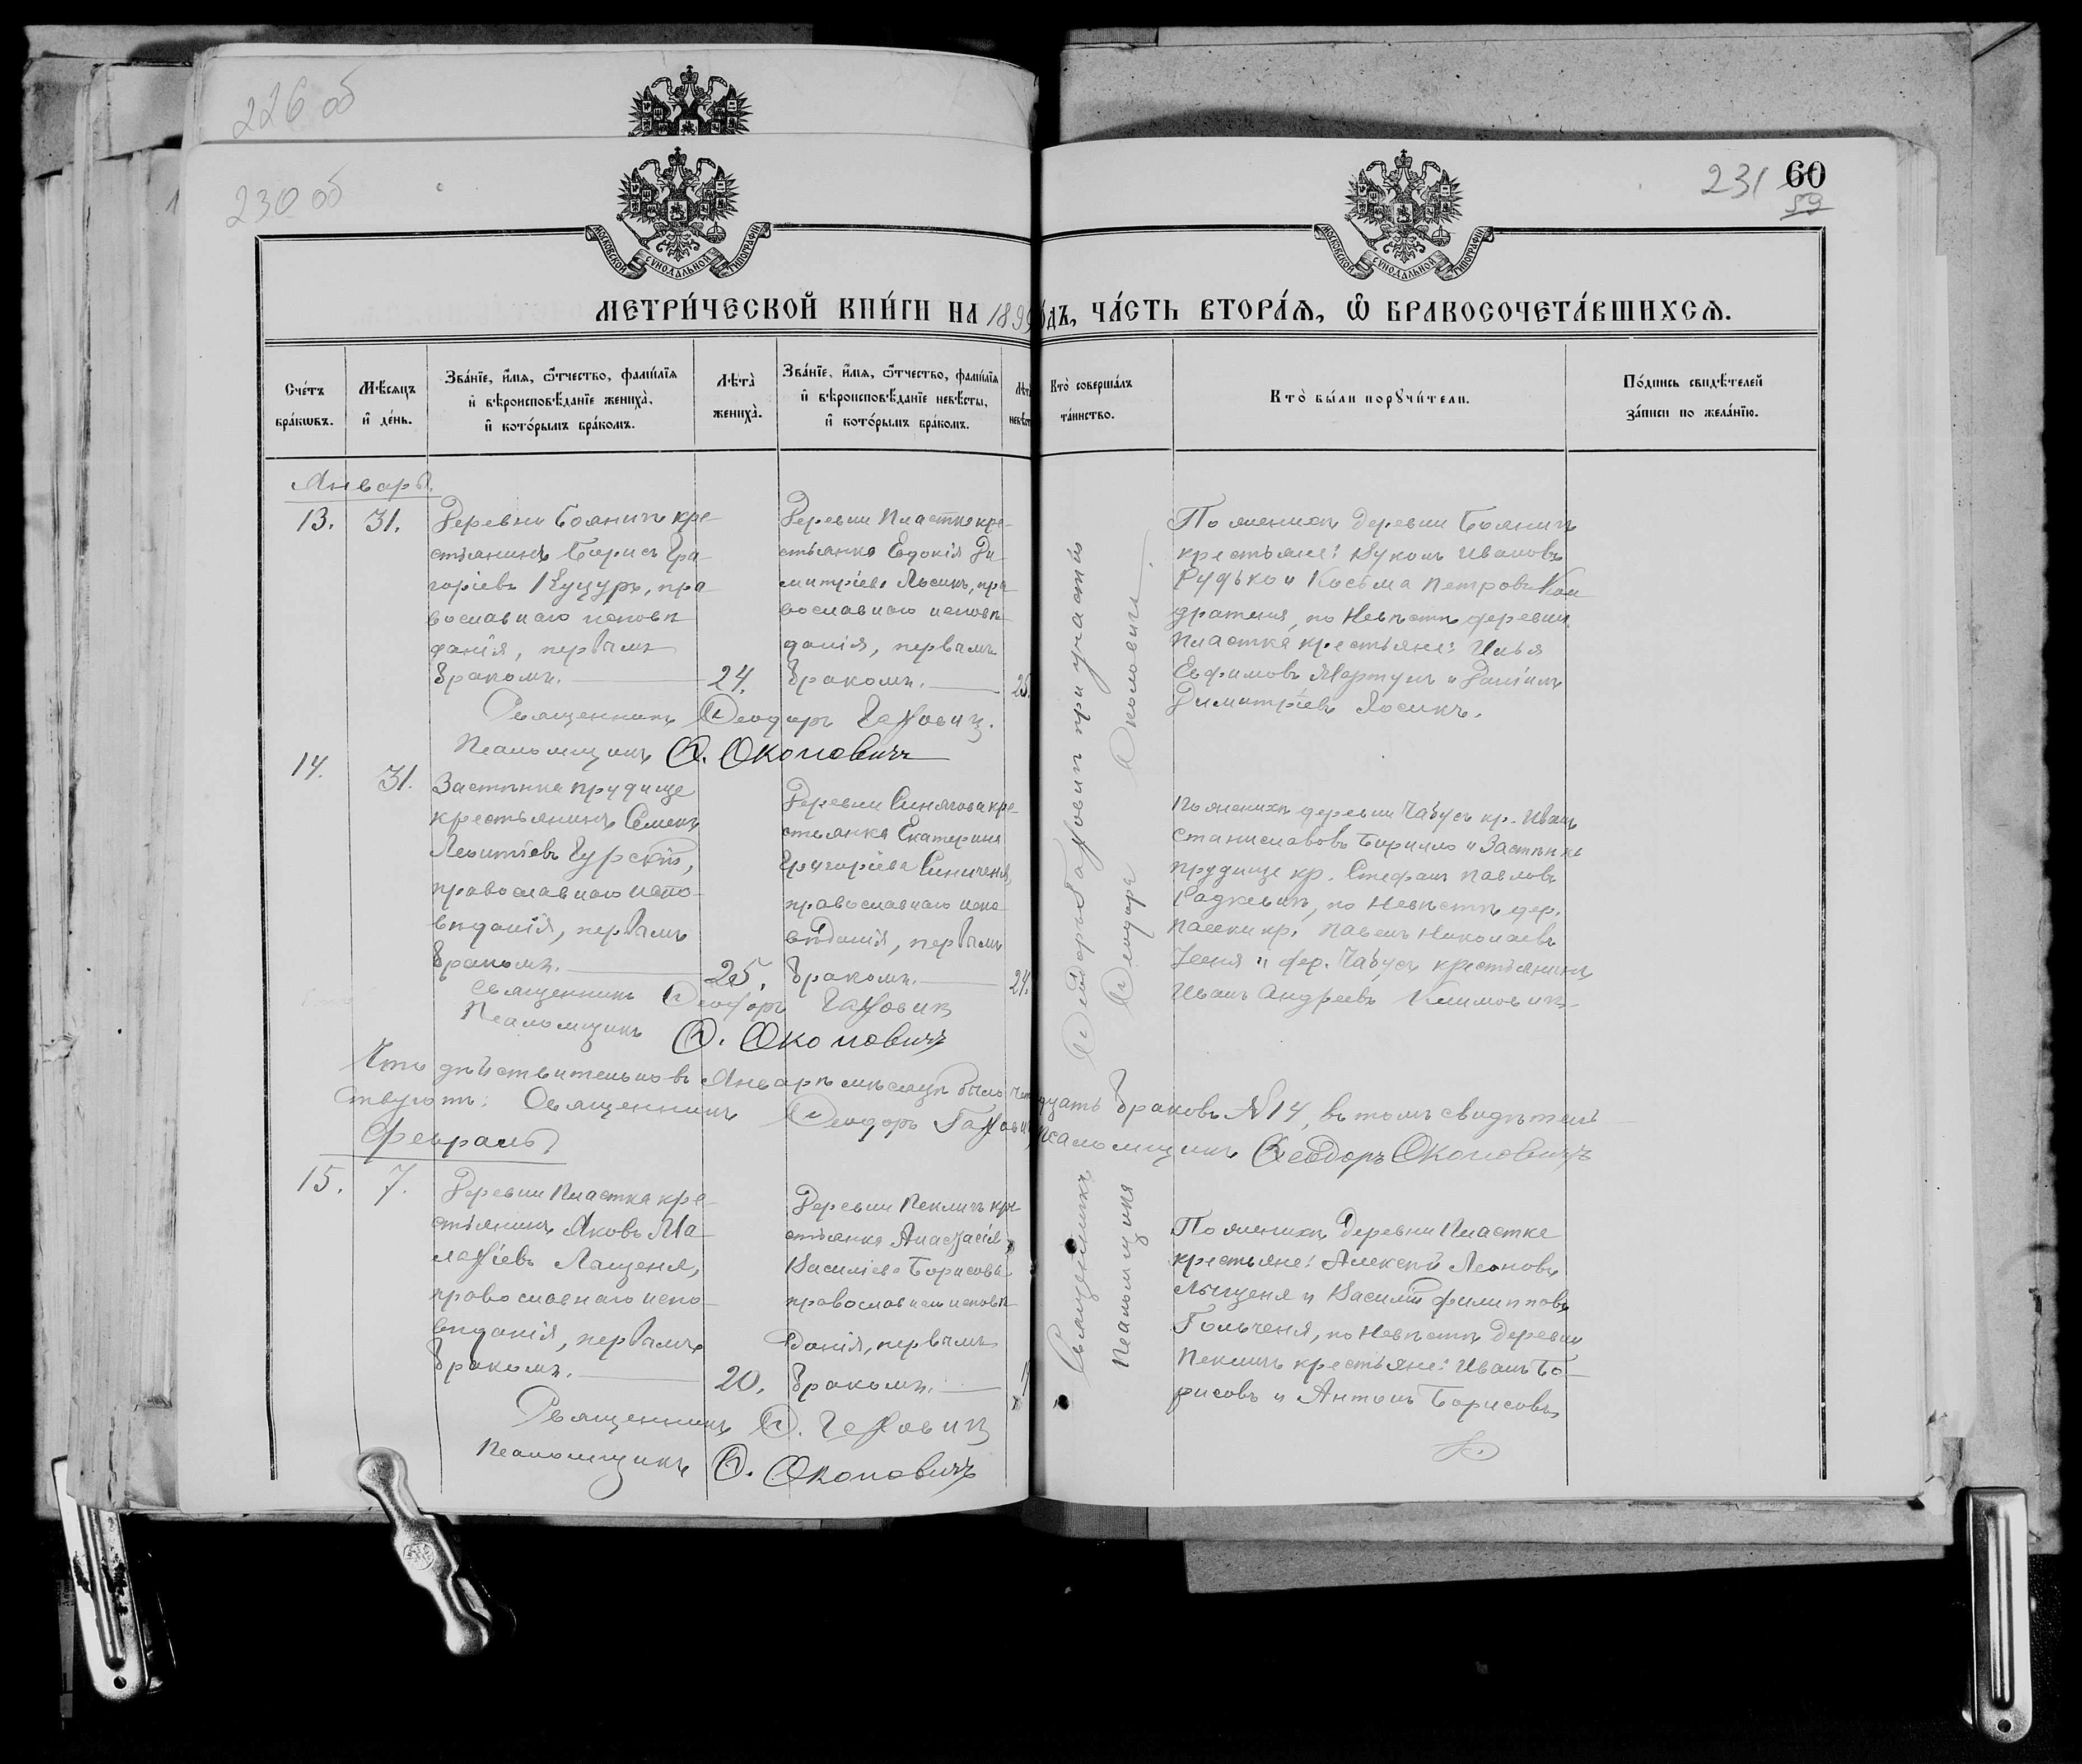 226 об
230 об
231 60
59
МОСКОВСКОЙ СѴНОДАЛЬНОЙ ТИПОГРАФІИ
МОСКОВСКОЙ СѴНОДАЛЬНОЙ ТИПОГРАФІИ
МЕТРИ́ЧЕСКОЙ КНИ́ГИ НА 1899 ГО́ДЪ, ЧА́СТЬ ВТОРА́Ѧ, Ѽ БРАКОСОЧЕТА́ВШИХСѦ.
Сче́тъ
бра́кѡвъ.
Мѣ́сѧцъ
и҆ де́нь.
Зва́нїе, и҆́мѧ, ѻ҆́тчество, фамѝлїѧ
и҆ вѣроисповѣ́данїе жениха̀,
и҆ кото́рымъ бра́комъ.
Лѣ́та̀
жениха̀.
Зва́нїе, и҆́мѧ, ѻ҆́тчество, фамѝлїѧ
и҆ вѣроисповѣ́данїе невѣ́сты,
и҆ кото́рымъ бра́комъ.
Кто̀ соверша́лъ
та́инство.
Кто̀ бы́ли порꙋчи́тели.
По́дпись свидѣ́телей
за́писи по жела́нїю.
Январь.
13. 31.
Деревни Боянич кре-
стьянинъ Борисъ Гри-
горіевъ Куцуръ, пра
вославнаго исповѣ
данія, первымъ
бракомъ. 24.
Деревни Пластка кре-
стьянка Евдокія Ди
митріева Лосикъ, пра
вославнаго исповѣ
данія, первымъ
бракомъ. 25.
По женихѣ деревни Боянич
крестьяне: Иванов
Рудько и Косьма Петровъ Кон
дратеня, по невѣстѣ деревни
Пластка крестьяне: Илья
Евфимовъ Мартул и Даніилъ
Димитріевъ Лосикъ.
Священникъ Ѳеодоръ
Псаломщикъ Ѳ. Околовичъ
14. 31.
Застѣнка Прудище
крестьянинъ Семенъ
Леонтіевъ Гурскій,
православнаго испо-
вѣданія, первымъ
бракомъ. 25.
Деревни Синягова кре-
стьянка Екатерина
Григоріева Синичена,
православнаго испо-
вѣданія, первымъ
бракомъ. 24.
По женихѣ деревни Чабусъ кр. Иванъ
Станиславовъ Бирилло и Застѣнка
Прудище кр. Стефанъ Павловъ
Радкевичъ, по невѣстѣ дер.
Пасеки кр. Павелъ Николаевъ
и дер. Чабусъ крестьянинъ
Иванъ Андреевъ Климовичъ
Священникъ Ѳеодоръ
Псаломщикъ Ѳ. Околовичъ
Что дѣйствительно въ Январѣ мѣсяцѣ было четырнадцать браковъ №14, въ томъ свидѣтель-
ствуютъ: Священникъ Ѳеодоръ Псаломщикъ Ѳеодоръ Околовичъ
Февраль
15. 7.
Деревни Пластка кре-
стьянинъ Яковъ Ма-
лафіевъ Лященя,
православнаго испо-
вѣданія, первымъ
бракомъ. 20.
Деревни Пекличъ кре-
стьянка Анастасія
Василіева Борисова
православнаго исповѣ
данія, первымъ
бракомъ.
По женихѣ Деревни Пластка
крестьяне: Алексѣй Леоновъ
Лященя и Василій Филипповъ
Гольченя, по невѣстѣ деревни
Пекличъ крестьяне: Иванъ Бо-
рисовъ и Антонъ Борисовъ
Священникъ Ѳ.
Псаломщикъ Ѳ. Околовичъ
Священникъ Ѳеодоръ при участіи
Псаломщика Ѳеодора Околовича.